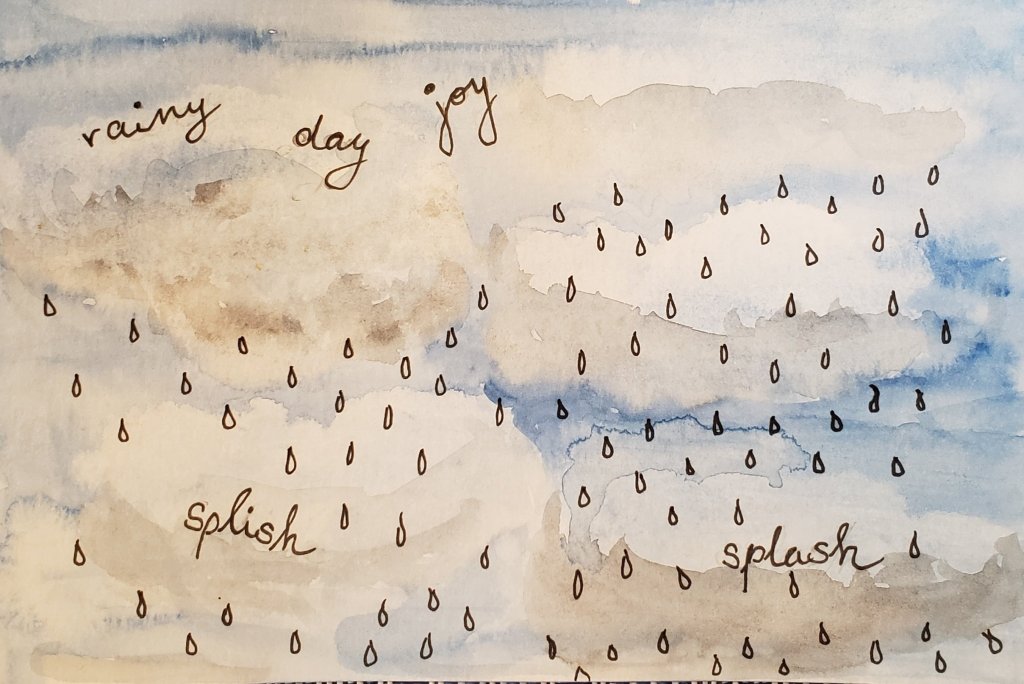 rainy day joy
splish splash